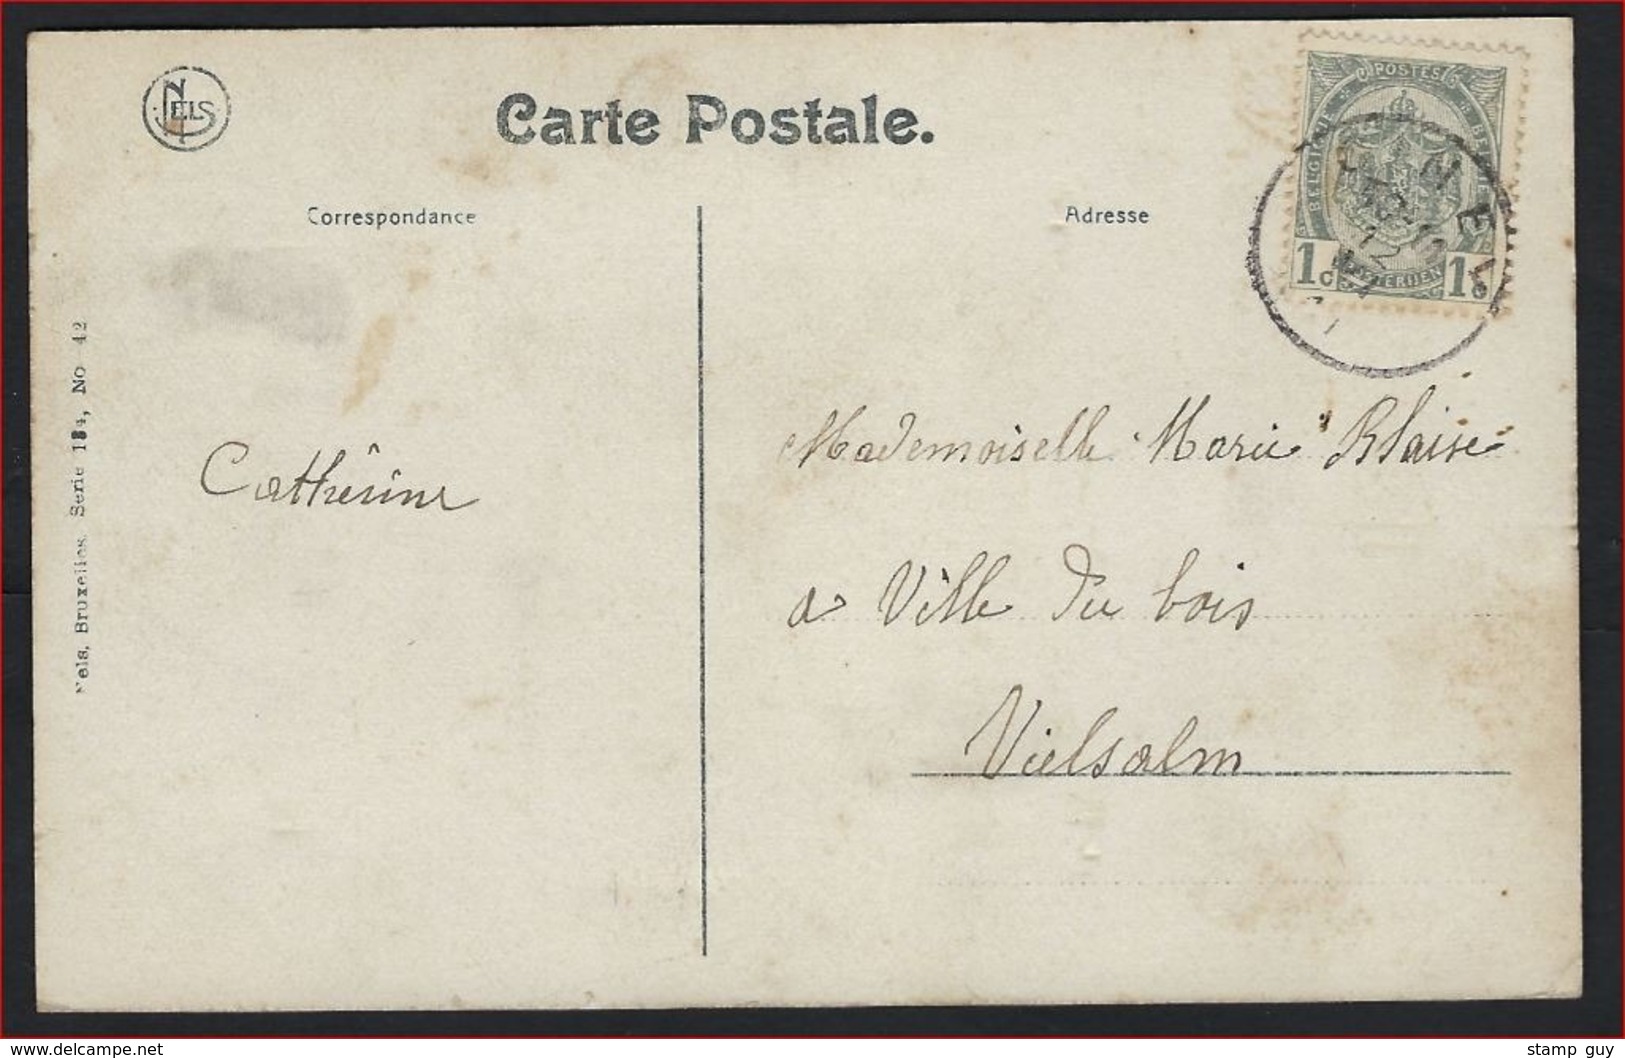 NELS
Carte Postale.
POSTES
BELGIQUE
1c
1c
Correspondance
Adresse
Nels, Bruxelles. Serie 184, No 42
Cathérine
Mademoiselle Marie Blaise
à Ville du bois
Vielsalm
delcampe.net
stamp guy